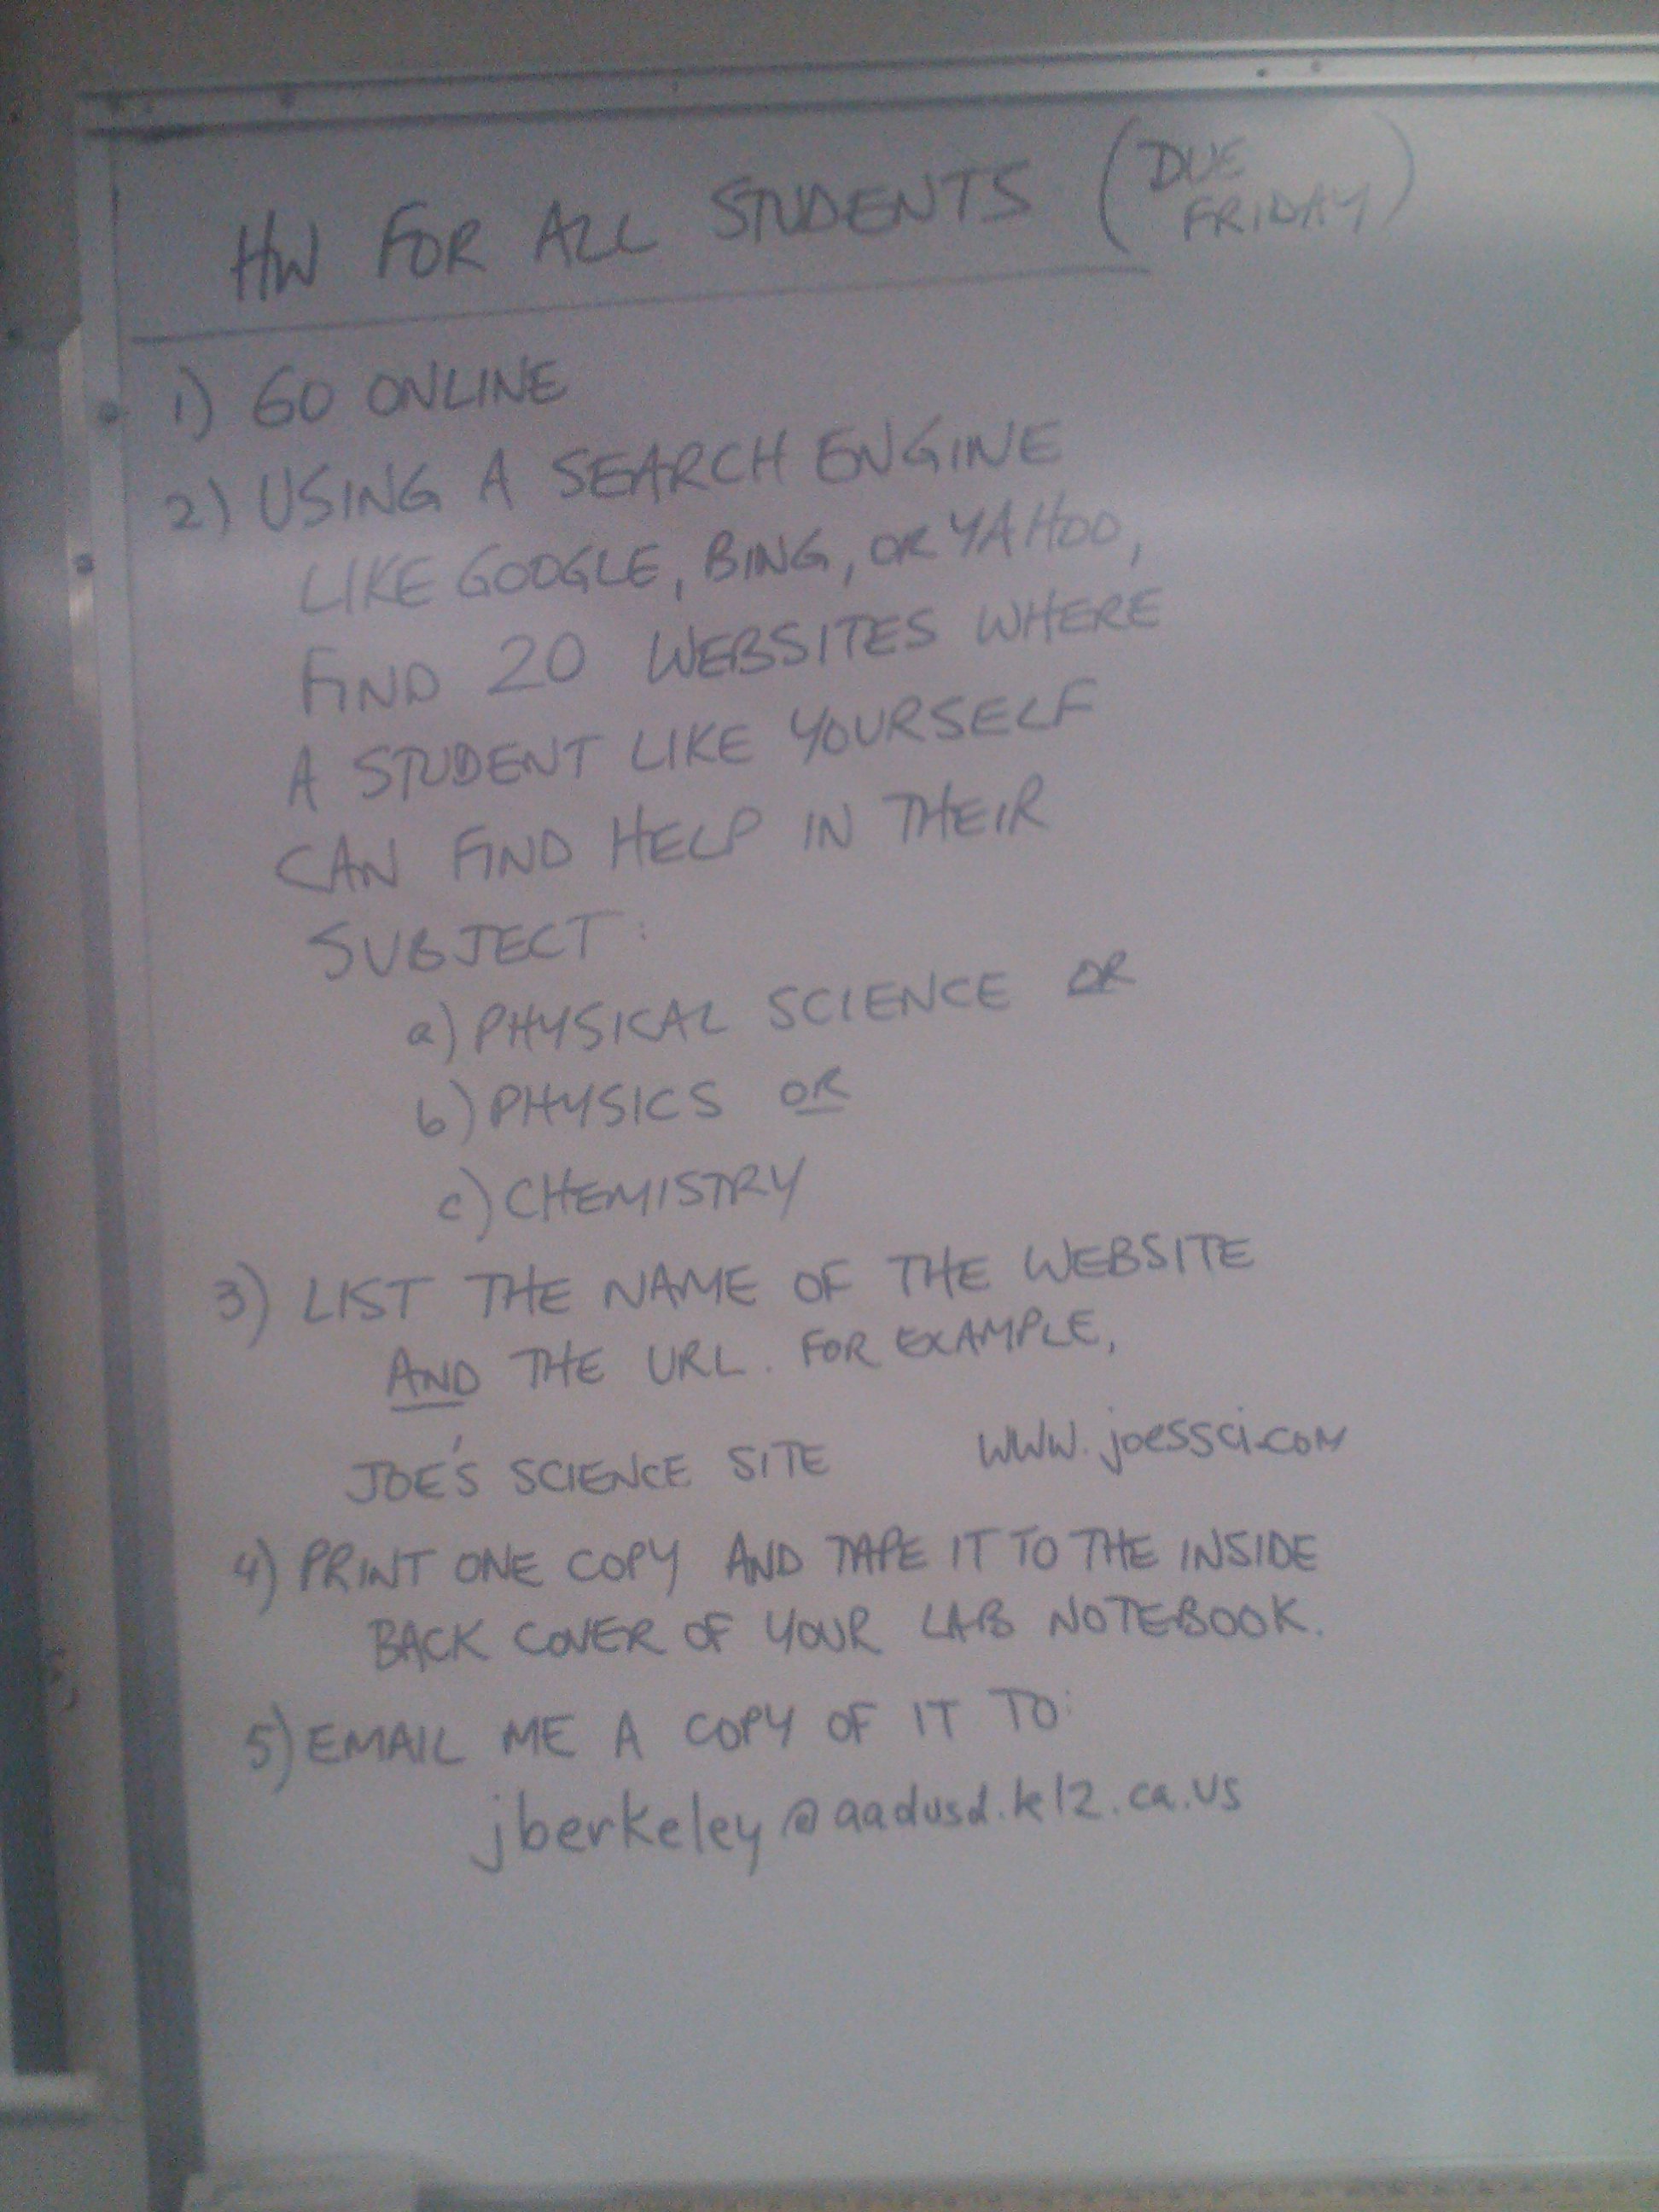 HW FOR ALL STUDENTS (DUE
FRIDAY)
1) GO ONLINE
2) USING A SEARCH ENGINE
LIKE GOOGLE, BING, OR YAHOO,
FIND 20 WEBSITES WHERE
A STUDENT LIKE YOURSELF
CAN FIND HELP IN THEIR
SUBJECT:
a) PHYSICAL SCIENCE OR
b) PHYSICS OR
c) CHEMISTRY
3) LIST THE NAME OF THE WEBSITE
AND THE URL. FOR EXAMPLE,
JOE'S SCIENCE SITE www.joessci.com
4) PRINT ONE COPY AND TAPE IT TO THE INSIDE
BACK COVER OF YOUR LAB NOTEBOOK.
5) EMAIL ME A COPY OF IT TO:
jberkeley@aadusd.k12.ca.us